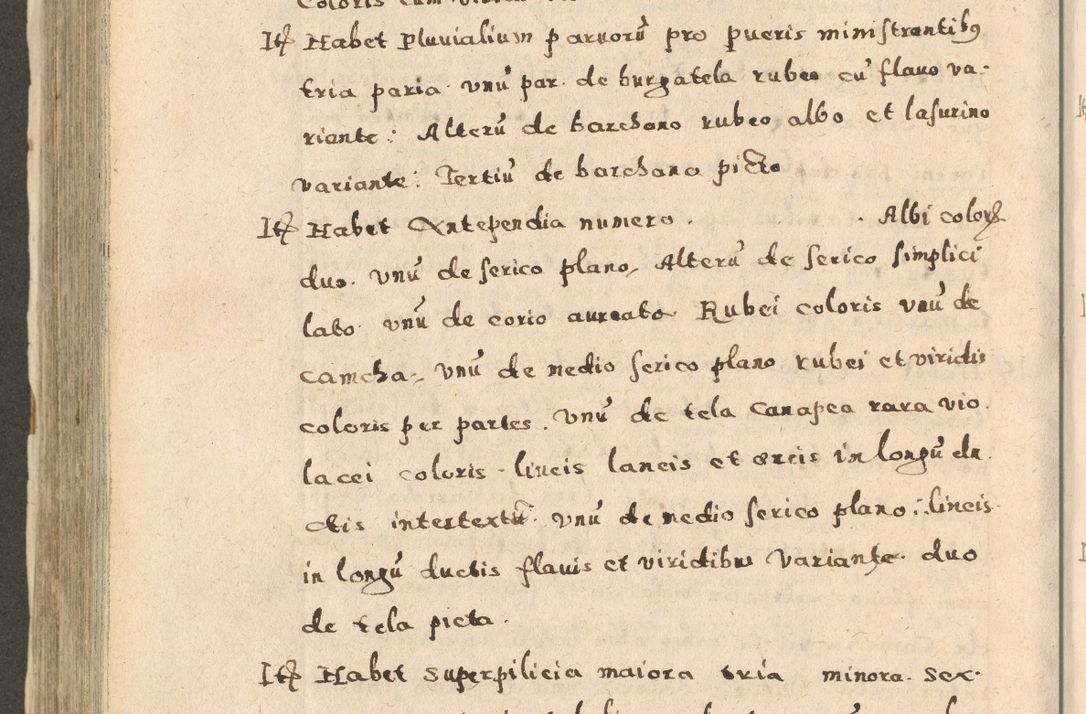 Coloris cum
Itꝫ Habet Pluvialium parvorū pro pueris ministrantibꝰ
tria paria. vnū par. de burgatela rubeo cū flavo va-
riante: Alterū de barchano rubeo albo et lasurino
variante: Tertiū de barchano picto
Itꝫ Habet Antependia numero . . Albi coloris
duo. vnū de serico plano, Alterū de serico simplici
lato. vnū de corio aureato Rubei coloris vnū de
camcha, vnū de medio serico plano rubei et viridis
coloris per partes. vnū de tela Canapea rara vio
lacei coloris lineis laneis et æreis in longū du
ctis intertextū. vnū de medio serico plano: lineis
in longū ductis flavis et viridibus Variante. duo
de tela picta.
Itꝫ Habet superpilicia maiora tria minora. sex.